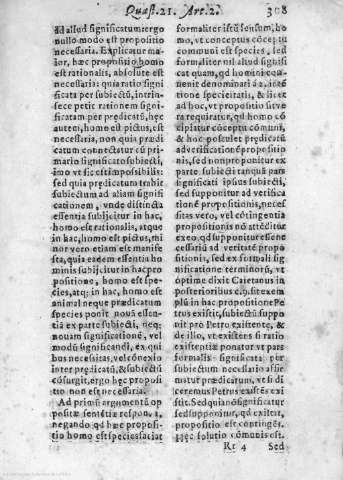 Quæst. 21. Art. 2. 308
ad aliud significatum: ergo
nullo modo est propositio
necessaria. Explicatur ma
ior, hæc propositio, homo
est rationalis, absolute est
necessaria: quia ratio signi
ficata per subiectũ, intrin-
sece petit rationem signi-
ficatam per prædicatũ, hęc
autem, homo est pictus, est
necessaria, non quia prædi
catum connectatur cũ pri-
mario significato subiecti,
imo vt sic est impossibilis:
sed quia prædicatum trahit
subiectum ad aliam signifi
cationem, vnde distincta
essentia subijcitur in hac,
homo est rationalis, atque
in hac, homo est pictus, mi
nor vero etiam est manife
sta, quia eadem essentia ho
minis subijcitur in hac pro
positione, homo est spe-
cies, atq; in hac, homo est
animal neque prædicatum
species ponit nouã essen-
tiã ex parte subiecti, neq;
nouam significationẽ, vel
modũ significandi, ex qui
bus necessitas, vel cõnexio
inter prædicatũ, & subiectũ
cõsurgit, ergo hęc proposi
tio non est necessaria.
Ad primũ argumentũ op
positæ sentẽtiæ respon.
negando, qd hæc proposi-
tio homo est species faciat
formaliter istũ sensum, ho
mo, vt conceptus cõceptu
communi est species, sed
formaliter nil aliud signifi
cat quam, qd homini conue
nienit denominari à
tione specieitatis, & licet
ad hoc, vt propositio sit ve
ra requiratur, qd homo cõ
cipiatur cõceptu cõmuni,
& hoc postulet prædicatũ
ad verificationẽ propositi
onis, sed non ponitur ex
parte subiecti tanquã pars
significati ipsius subiecti,
sed supponitur ad verifica
tionẽ propositionis, neces
sitas vero, vel cõtingentia
propositionis nõ attẽditur
ex eo, qd supponitur esse ne
cessariũ ad veritatẽ propo
sitionis, sed ex formali sig
nificatione terminorũ, vt
optime dixit Caietanus in
posterioribus c. 9. sit exem
plũ in hac propositione Pe
trus existit, subiectũ suppo
nit pro Petro existente, &
de illo, vt existens si ratio
existẽtiæ ponatur vt pars
formalis significata per
subiectum necessario affir
matur prædicatum, vt si di
ceremus Petrus existẽs exi
stit. Sed quia nõ significatur
sed supponitur, qd existat,
propositio est contingẽs.
Hęc solutio cõmunis est.
Rr 4 Sed